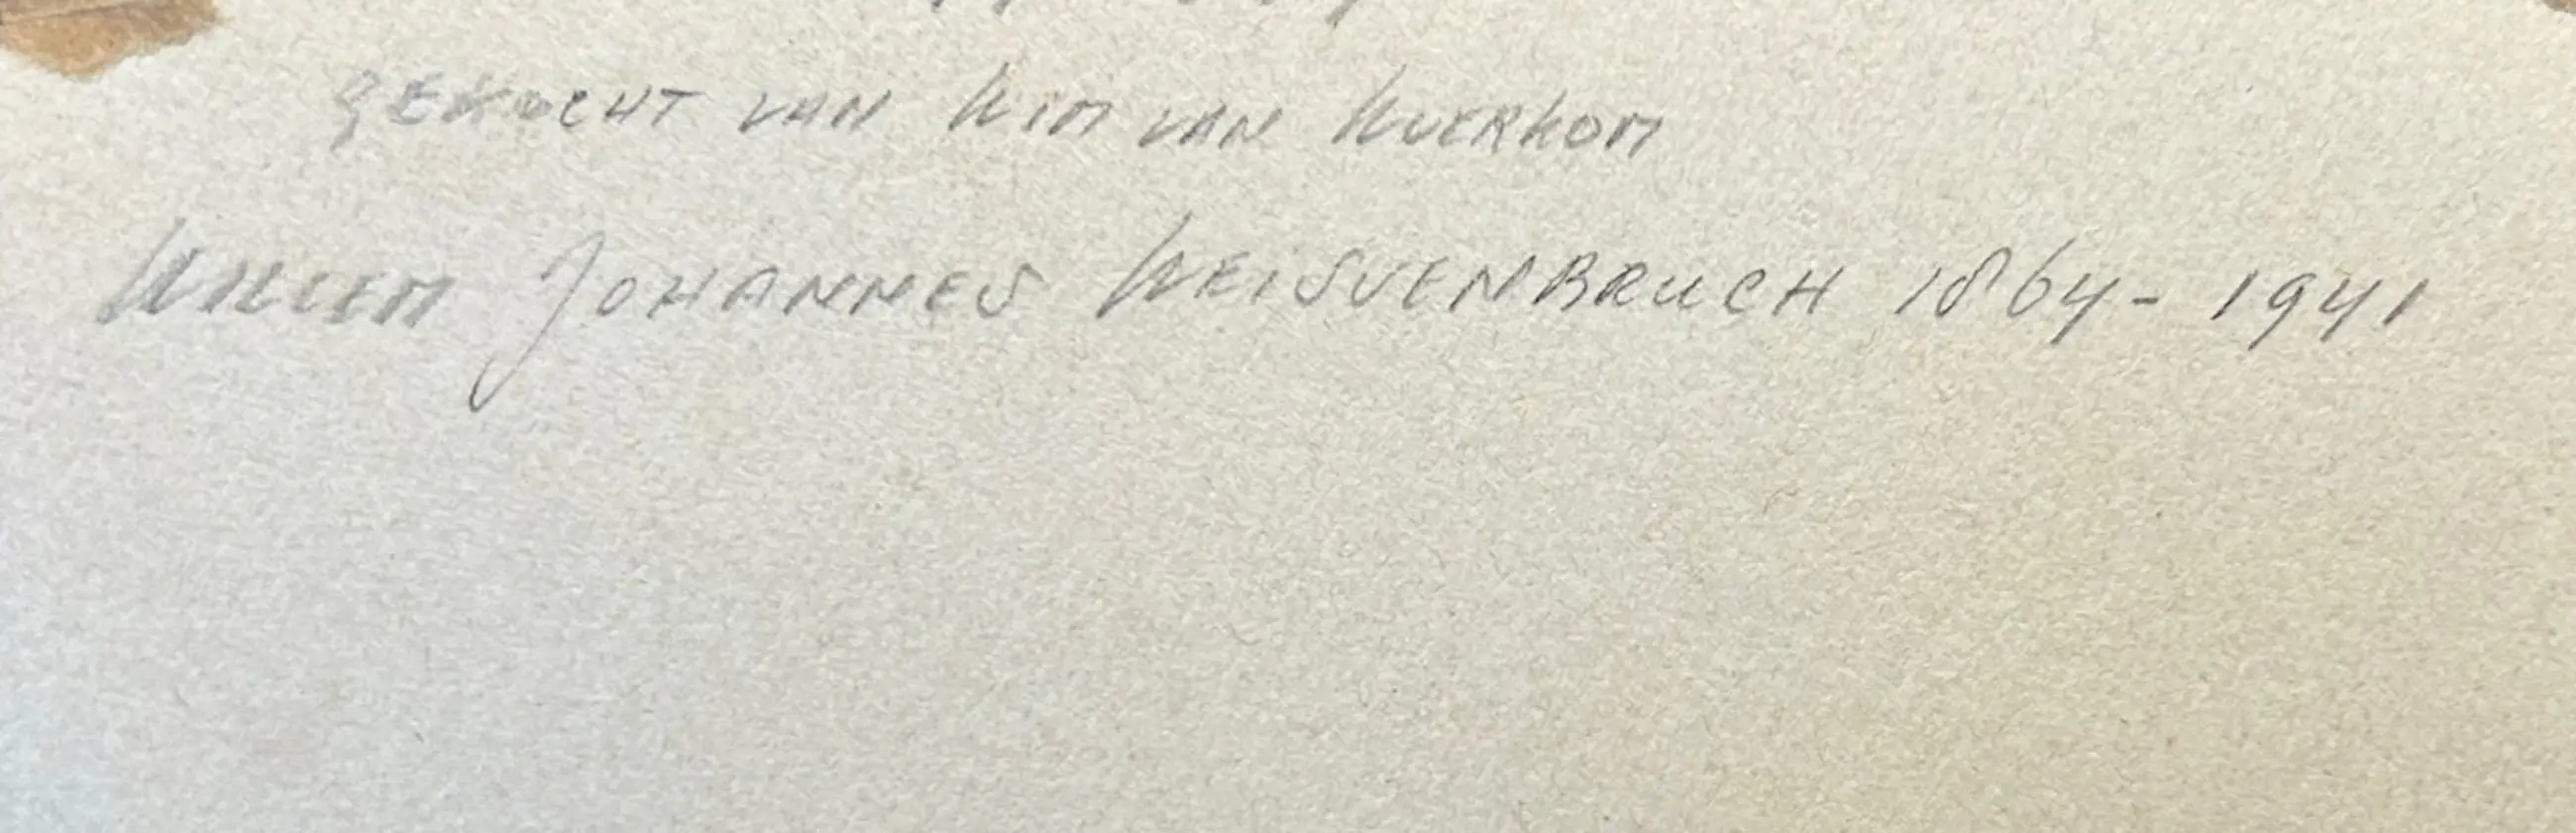 GEKOCHT VAN WIM VAN WOERKOM
WILLEM JOHANNES WEISSENBRUCH 1864-1941